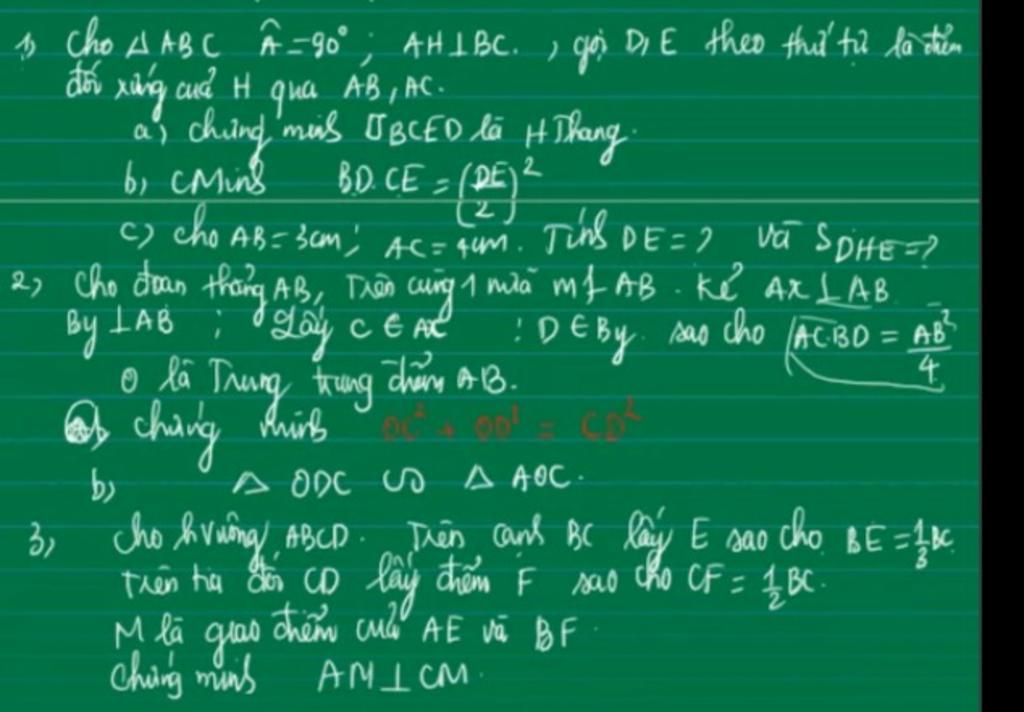 1) Cho Δ ABC Â = 90° ; AH ⊥ BC. , gọi D, E theo thứ tự là điểm
đối xứng cuả H qua AB, AC.
a) chứng minh BCED là H Thang.
b, CMinh BD.CE = (DE/2)²
c) cho AB = 3cm ; AC = 4cm. Tính DE = ? và S_DHE = ?
2, Cho đoạn thẳng AB, Trên cùng 1 nửa mf AB. Kẻ Ax ⊥ AB
By ⊥ AB ; Lấy C ∈ Ax ; D ∈ By. sao cho AC.BD = AB²/4
O là Trung trung điểm AB.
a) chứng minh OC² + OD² = CD²
b) Δ ODC ∽ Δ AOC.
3, Cho hvuông ABCD. Trên cạnh BC lấy E sao cho BE = 1/3 BC
Trên tia đối CD lấy điểm F sao cho CF = 1/2 BC.
M là giao điểm cuả AE và BF.
Chứng minh AM ⊥ CM.